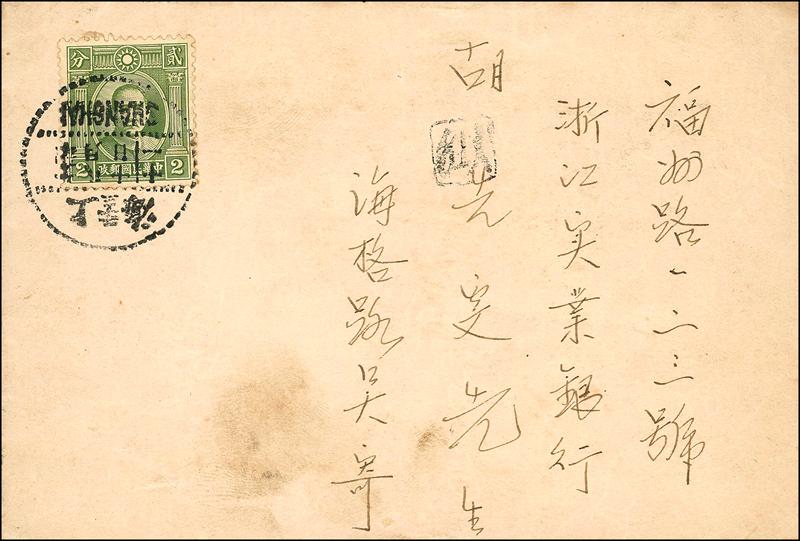 福州路一二三號
浙江实業銀行
胡 先生
海格路吴寄
貳
分
2
2
中華民國郵政
SHANGHAI
上海